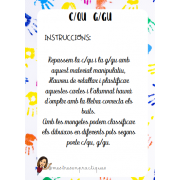 C/QU G/GU
INSTRUCCIONS:
Repassem la c/qu i la g/gu amb
aquest material manipulatiu.
Haureu de retallar i plastificar
aquestes cartes i l'alumnat haurà
d'omplir amb la lletra correcta els
buits.
Amb les mangales podem classificar
els dibuixos en diferents pots segons
porte c/qu, g/gu.